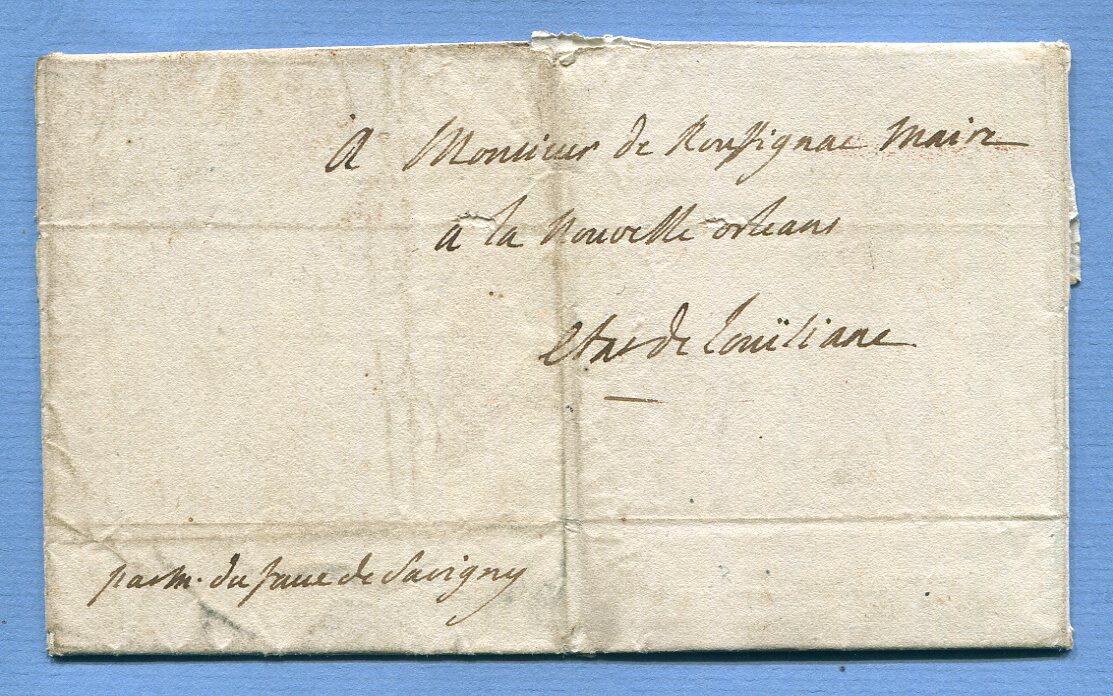 A Monsieur de Rouffignac Maire
a la nouvelle orleans
etat de Louïsiane
par m. du faure de Savigny